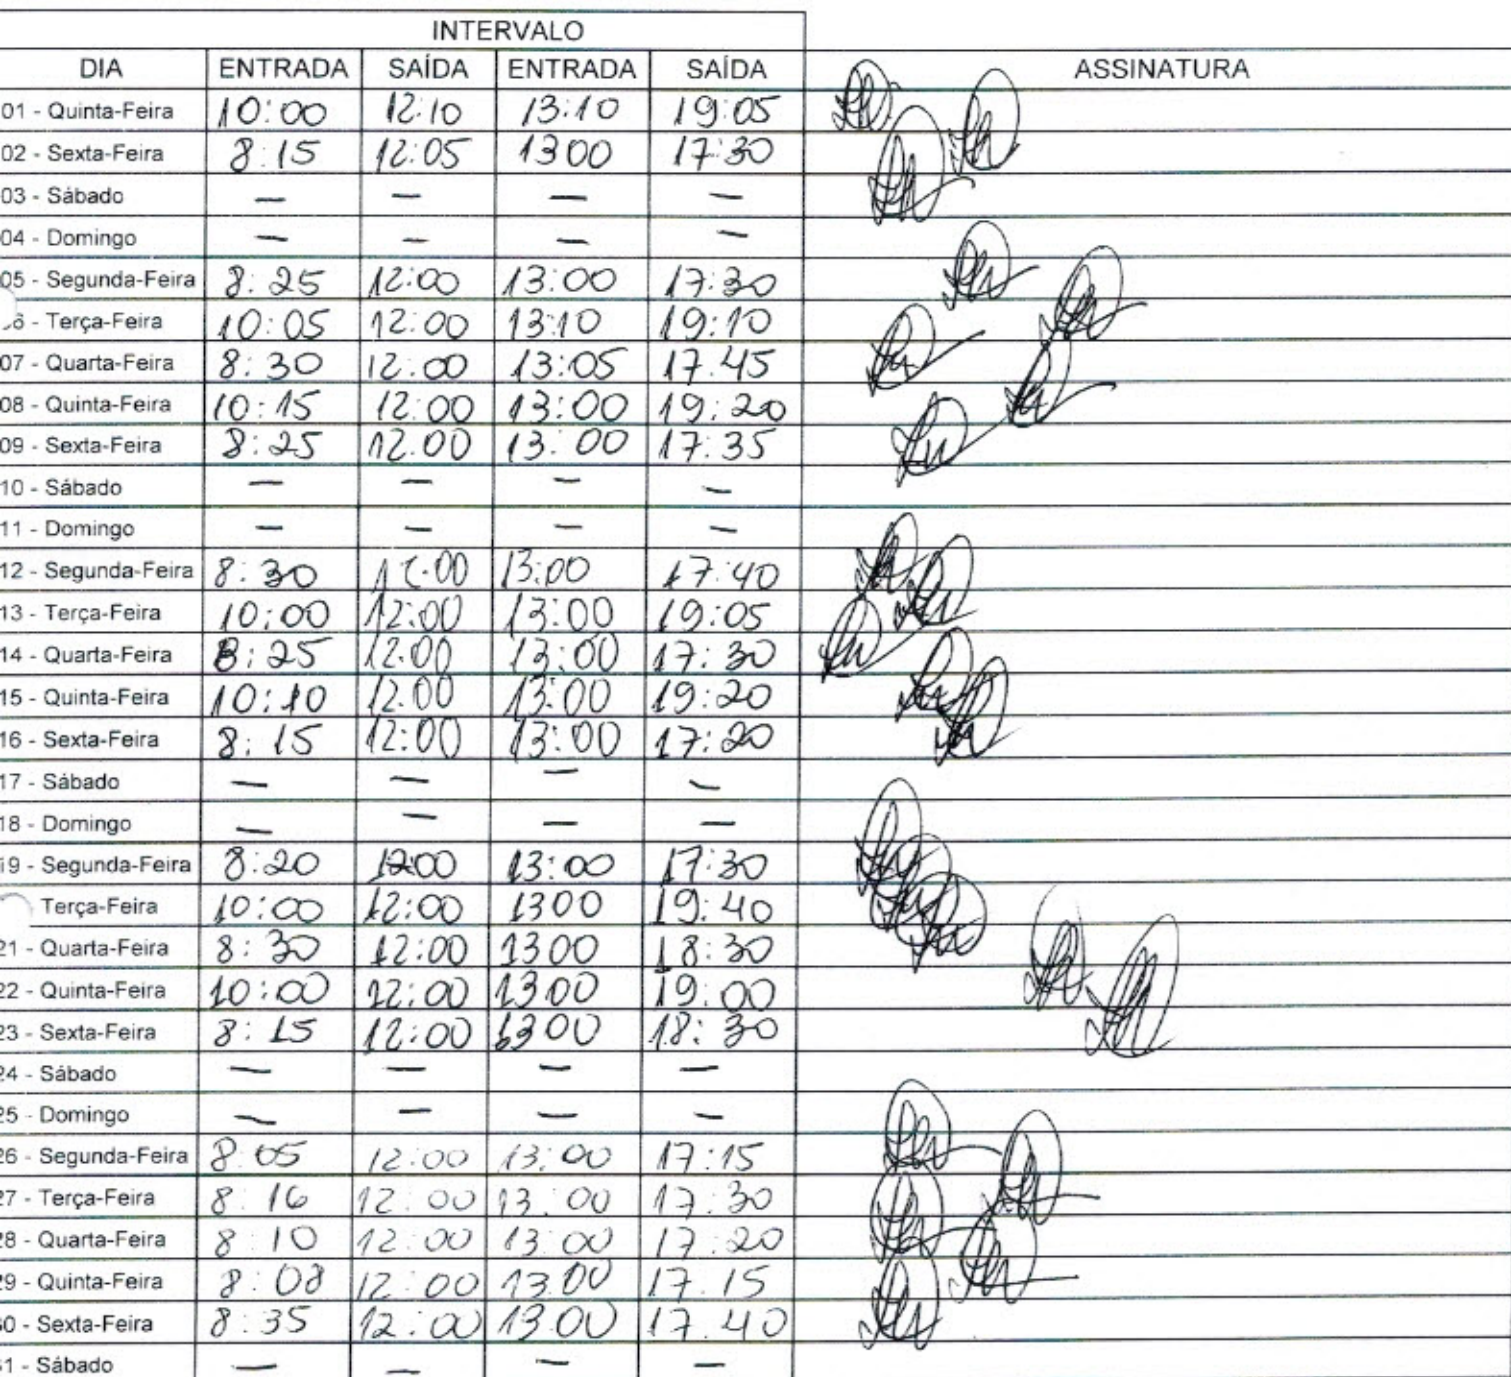 INTERVALO
DIA ENTRADA SAÍDA ENTRADA SAÍDA ASSINATURA
01 - Quinta-Feira 10:00 12:10 13:10 19:05
02 - Sexta-Feira 8:15 12:05 1300 17:30
03 - Sábado — — — —
04 - Domingo — — — —
05 - Segunda-Feira 8:25 12:00 13:00 17:30
6 - Terça-Feira 10:05 12:00 13:10 19:10
07 - Quarta-Feira 8:30 12:00 13:05 17:45
08 - Quinta-Feira 10:15 12:00 13:00 19:20
09 - Sexta-Feira 8:25 12:00 13:00 17:35
10 - Sábado — — — —
11 - Domingo — — — —
12 - Segunda-Feira 8:30 12:00 13:00 17:40
13 - Terça-Feira 10:00 12:00 13:00 19:05
14 - Quarta-Feira 8:25 12:00 13:00 17:30
15 - Quinta-Feira 10:10 12:00 13:00 19:20
16 - Sexta-Feira 8:15 12:00 13:00 17:20
17 - Sábado — — — —
18 - Domingo — — — —
19 - Segunda-Feira 8:20 12:00 13:00 17:30
Terça-Feira 10:00 12:00 1300 19:40
21 - Quarta-Feira 8:30 12:00 1300 18:30
22 - Quinta-Feira 10:00 12:00 1300 19:00
23 - Sexta-Feira 8:15 12:00 1300 18:30
24 - Sábado — — — —
25 - Domingo — — — —
26 - Segunda-Feira 8:05 12:00 13:00 17:15
27 - Terça-Feira 8:16 12:00 13:00 17:30
28 - Quarta-Feira 8:10 12:00 13:00 17:20
29 - Quinta-Feira 8:08 12:00 13:00 17:15
30 - Sexta-Feira 8:35 12:00 13:00 17:40
31 - Sábado — — — —